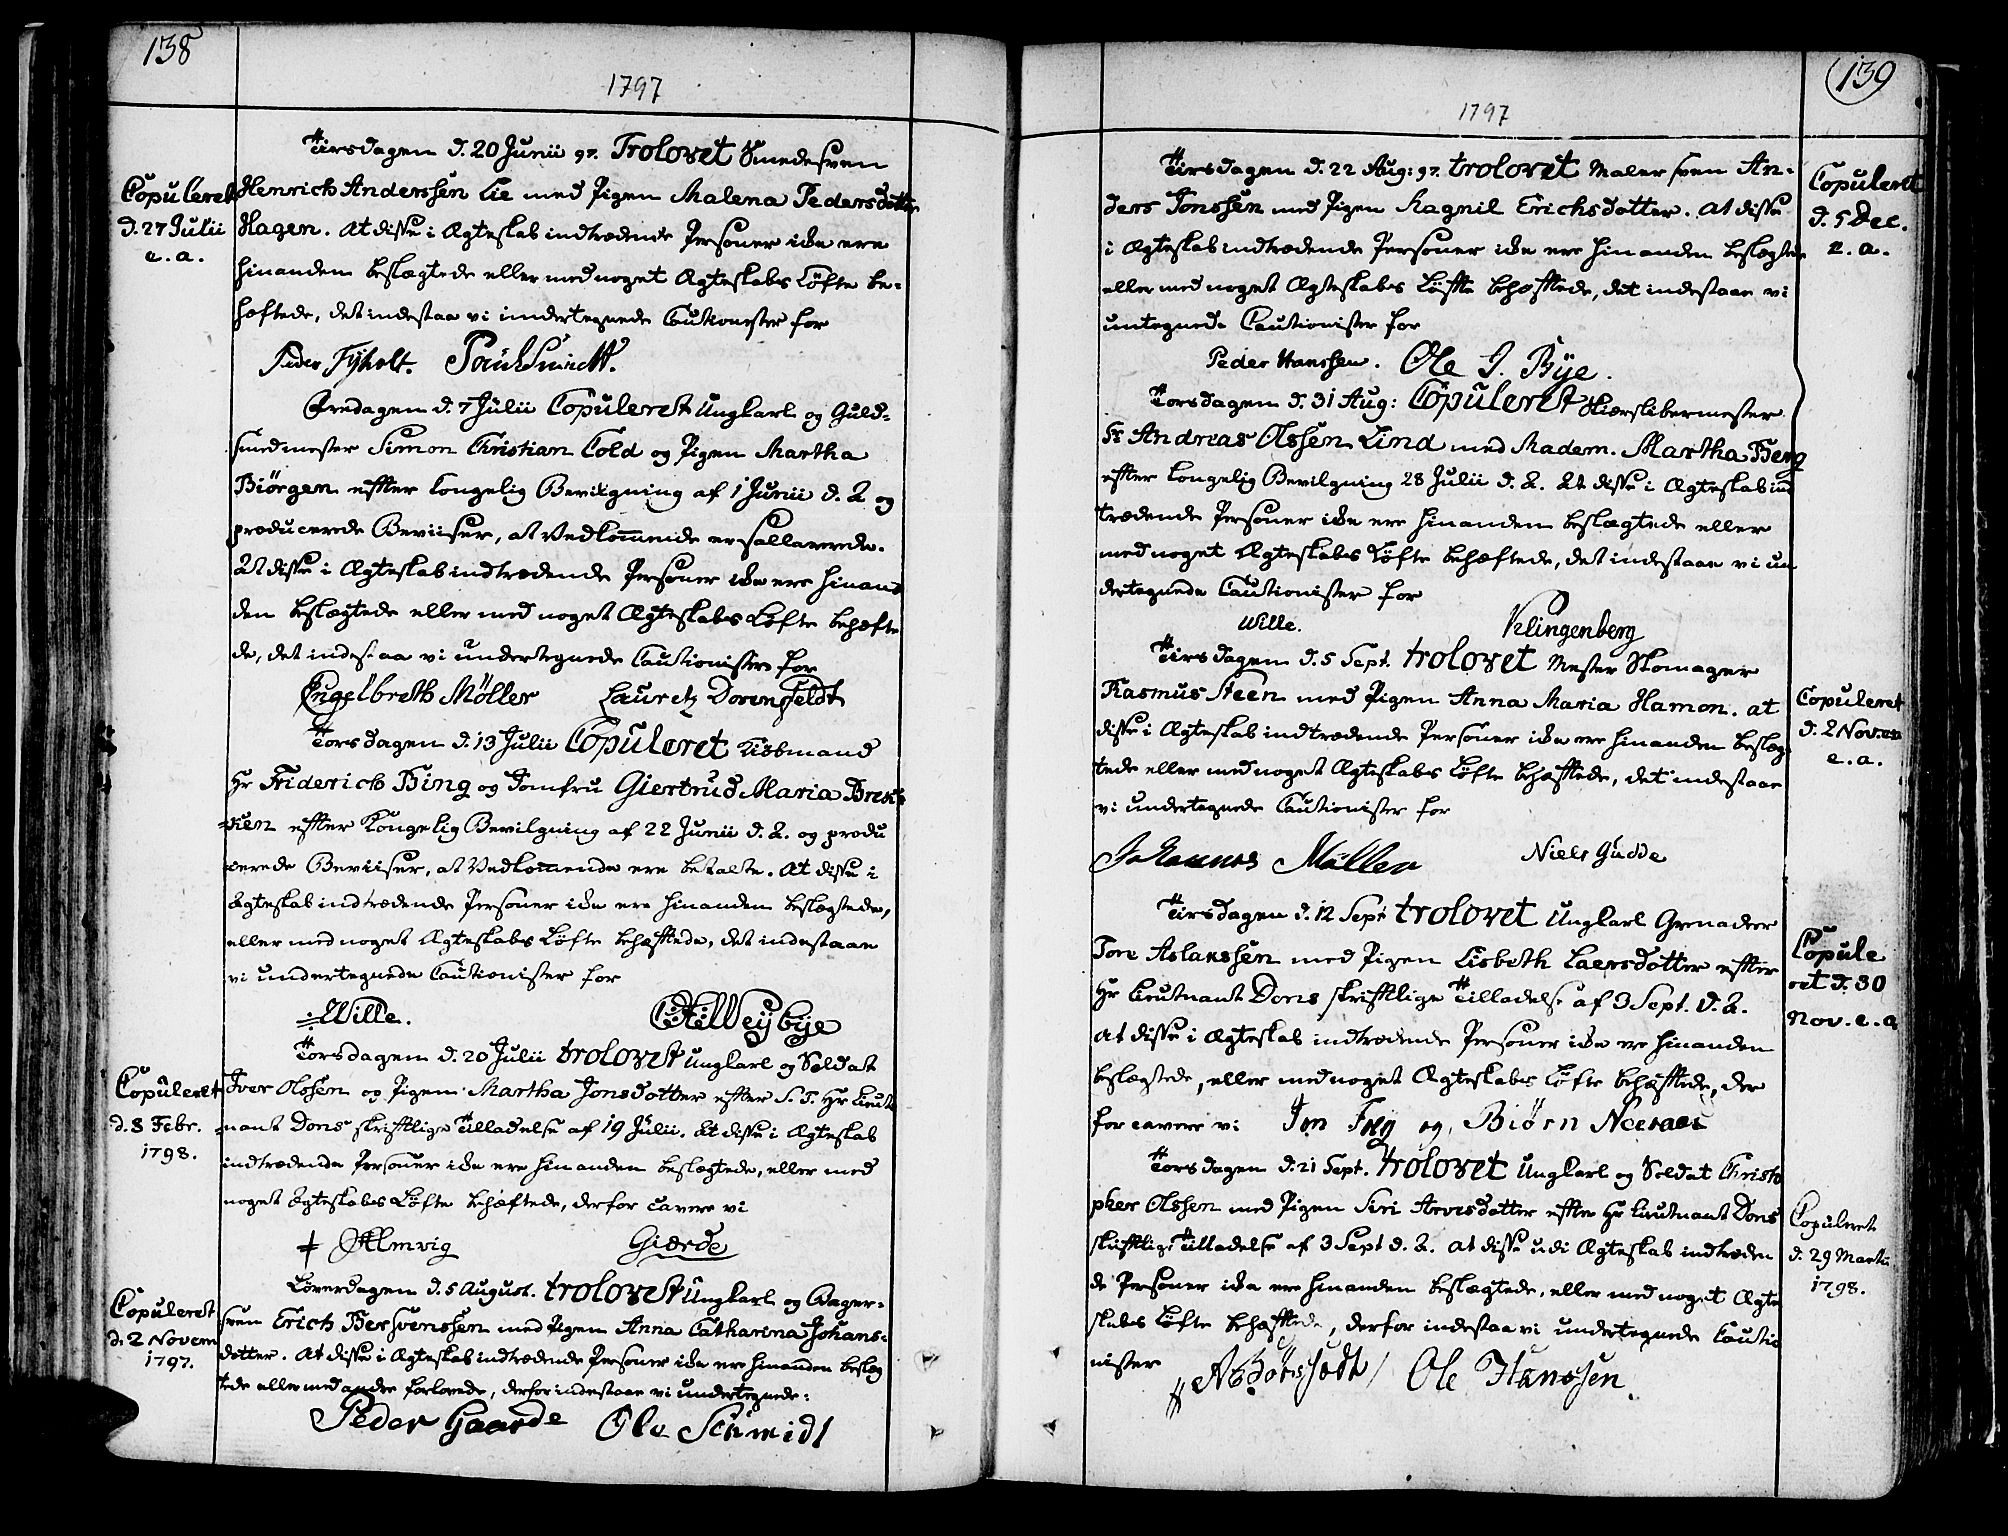 138
1797
Tirsdagen d. 20 Junii 97. Trolovet Smedesven
Copuleret
d. 27 Julii
e. a.
Henrich Anderssen Lie med Pigen Malena Pedersdotter
Hagen. At disse i Ægteskab indtrædende Personer ikke ere
hinanden beslægtede eller med noget Ægteskabs Løfte be-
hæftede, det indestaa vi undertegnede Cautionister for
Peder Fyholt.
Fredagen d. 7 Julii Copuleret Ungkarl og Guld-
smedmester Simon Christian Cold og Pigen Martha
Biörgen efter kongelig Bevilgning af 1 Junii d. A. og
producerede Beviiser, at Vedkommende er
At disse i Ægteskab indtrædende Personer ikke ere hinan-
den beslægtede eller med noget Ægteskabs Løfte behæfte
de, det indestaa vi undertegnede Cautionister for
Engelbreth Möller Lauretz Dorenfeldt
Torsdagen d. 13 Julii Copuleret Kiøbmand
Hr Friderich Bing og Jomfru Giertrud Maria
efter Kongelig Bevilgning af 22 Junii d. A. og produ
cerede Beviiser, at Vedkommende ere betalte. At disse i
Ægteskab indtrædende Personer ikke ere hinanden beslægtede,
eller med noget Ægteskabs Løfte behæftede, det indestaae
vi undertegnede Cautionister for
Wille. Weybye
Torsdagen d. 20 Julii trolovet Ungkarl og Soldat
Copuleret
d. 8 Febr.
1798.
Iver Olssen og Pigen Martha Jonsdotter efter S. T. Hr Lieute
nant Dons skriftlige Tilladelse af 19 Julii. At disse i Ægteskab
indtrædende Personer ikke ere hinanden beslægtede, eller med
noget Ægteskabs Løfte behæftede, derfor cavere vi
Almvig Giærde
Løverdagen d. 5 August. trolovet Ungkarl og Bager-
Copuleret
d. 2 Novem
1797.
sven Erich Bersvenssen med Pigen Anna Catharina Johans-
dotter. At disse i Ægteskab indtrædende Personer ikke ere hinanden beslæg
tede eller med andre forlovede, derfor indestaae vi undertegnede:
Peder Gaarde Ole Schmidt
139
1797
Tirsdagen d. 22 Aug: 97. trolovet Maler sven An-
Copuleret
d. 5 Dec.
e. a.
ders Jonssen med Pigen Ragnil Erichsdotter. At disse
i Ægteskab indtrædende Personer ikke ere hinanden beslægtede
eller med noget Ægteskabs Løffte behæfftede, det indestaae vi
untegnede Cautionister for
Peder Hanssen. Ole J. Bye.
Torsdagen d. 31 Aug: Copuleret Skiærslibermester
Hr Andreas Olssen Lind med Madem. Martha Berg
efter kongelig Bevilgning 28 Julii d. A. At disse i Ægteskab ind
trædende Personer ikke ere hinanden beslægtede eller
med noget Ægteskabs Løfte behæftede, det indestaae vi un
dertegnede Cautionister for
Wille. Klingenberg
Tirsdagen d. 5 Sept. trolovet Mester Skomager
Copuleret
d. 2 Nov.
e. a.
Rasmus Steen med Pigen Anna Maria Hamon. at
disse i Ægteskab indtrædende Personer ikke ere hinanden beslæg-
tede eller med noget Ægteskabs Løfte behæfftede, det indestaae
vi undertegnede Cautionister for
Johannes Möller Niels Gudde
Tirsdagen d. 12 Sept trolovet Ungkarl Grenadeer
Copule
ret d. 30
Nov. e. a
Tore Aslakssen med Pigen Lisbeth Laersdotter efter
Hr Lieutnant Dons skrifftlige Tilladelse af 3 Sept. d. A.
At disse i Ægteskab indtrædende Personer ikke ere hinanden
beslægtede, eller med noget Ægteskabs Løfte behæfftede, der
for cavere vi Jon og Biörn
Torsdagen d. 21 Sept. trolovet Ungkarl og Soldat Christo
Copuleret
d. 29 Martii
1798.
pher Olssen med Pigen Siri Arvesdotter efter Hr Lieutnant Dons
skrifftlige Tilladelse af 3 Sept d. A. At disse udi Ægteskab indtræden
de Personer ikke ere hinanden beslægtede, eller med noget Ægte
skabs Løfte behæfftede, derfor indestaa vi undertegnede Cautio
nister
Ole Hanssen.